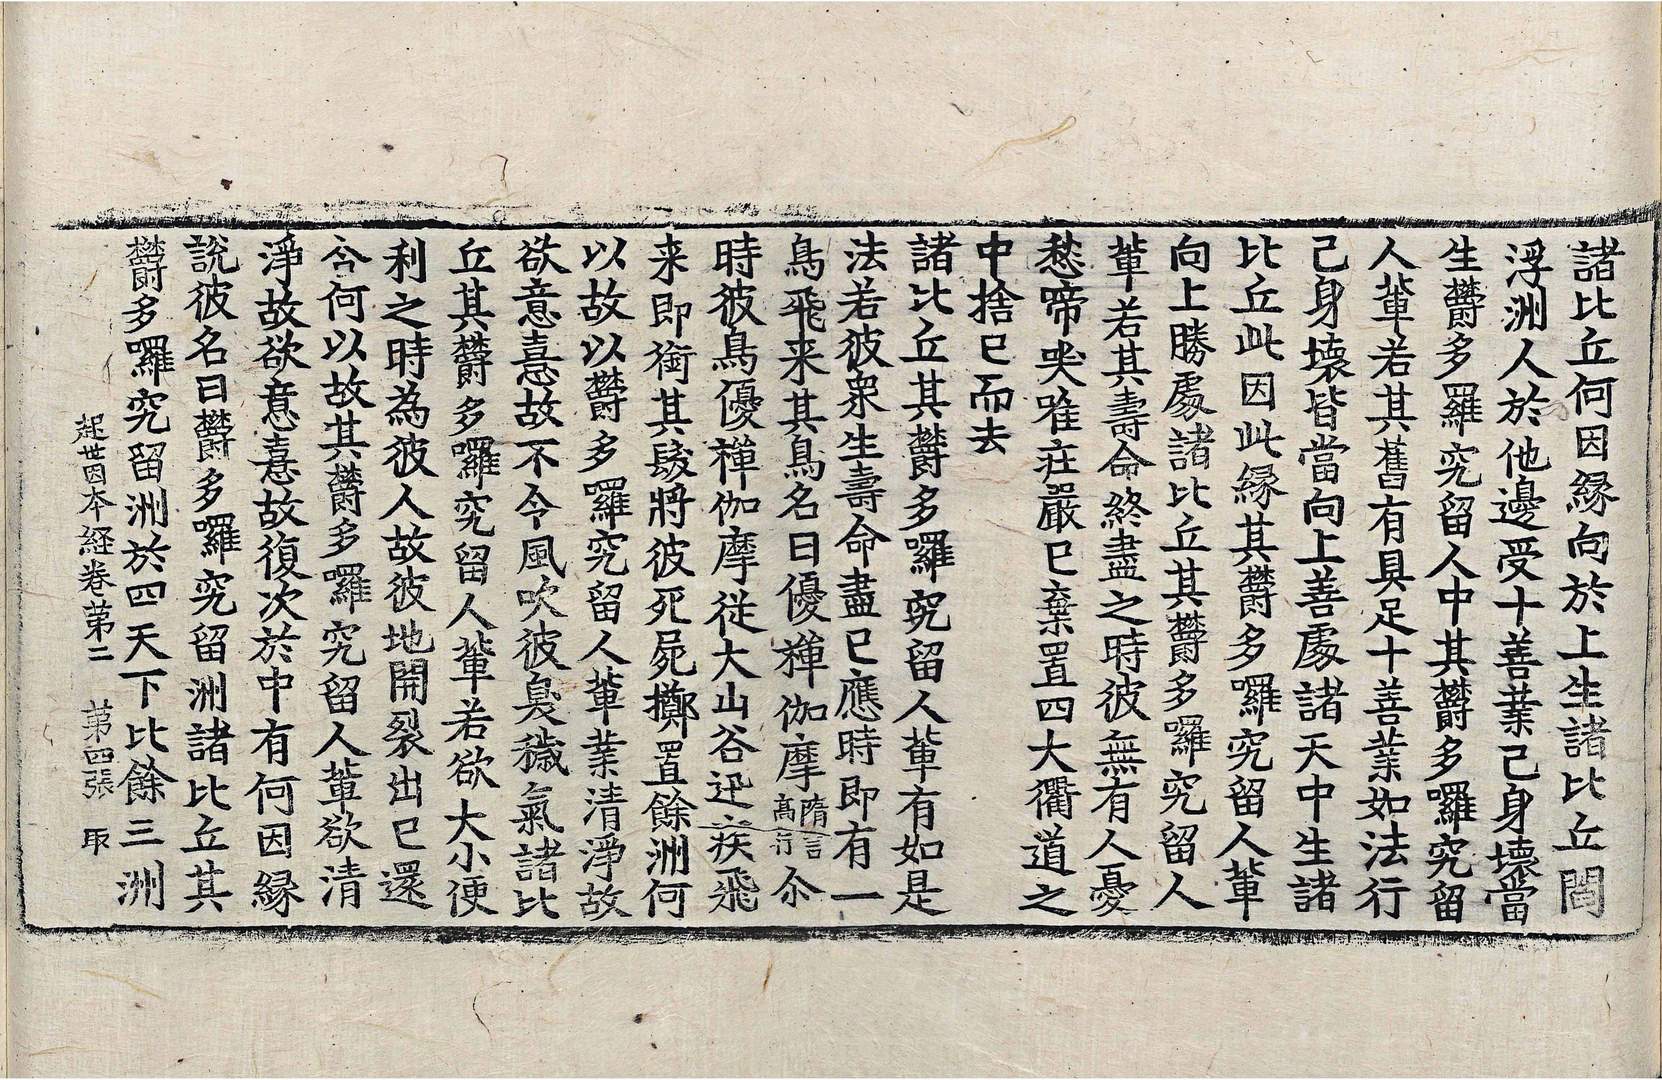 諸比丘何因縁向於上生諸比丘閻
浮洲人於他邊受十善業己身壞當
生欝多羅究留人中其欝多囉究留
人輩若其舊有具足十善業如法行
己身壞皆當向上善處諸天中生諸
比丘此因此縁其欝多囉究留人輩
向上勝處諸比丘其欝多囉究留人
輩若其壽命終盡之時彼無有人憂
愁啼哭唯莊嚴已棄置四大衢道之
中捨已而去
諸比丘其欝多囉究留人輩有如是
法若彼衆生壽命盡已應時即有一
鳥飛来其鳥名曰優禪伽摩隋言高行尒
時彼鳥優禪伽摩従大山谷迅疾飛
来即銜其髮將彼死屍擲置餘洲何
以故以欝多囉究留人輩業清淨故
欲意憙故不令風吹彼臭穢氣諸比
丘其欝多囉究留人輩若欲大小便
利之時為彼人故彼地開裂出已還
合何以故其欝多囉究留人輩欲清
淨故欲意憙故復次於中有何因縁
說彼名曰欝多囉究留洲諸比丘其
欝多囉究留洲於四天下比餘三洲
起世因本経卷苐二 苐四張